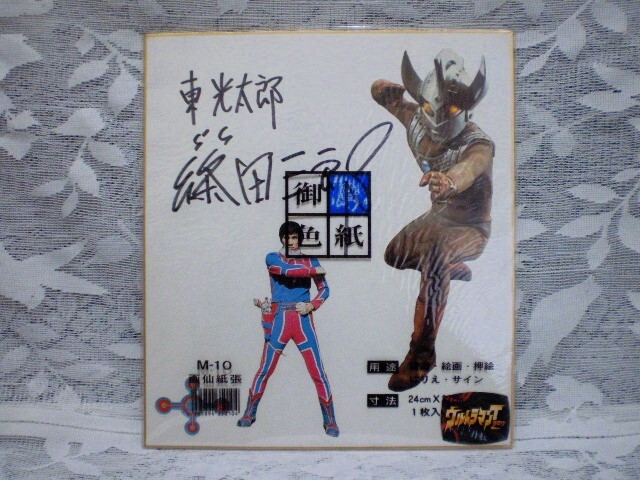 東光太郎
篠田三郎
御画
色紙
M-10
画仙紙張
用途
・絵画・押絵
はりえ・サイン
寸法
24cm X
1枚入
ウルトラマンT